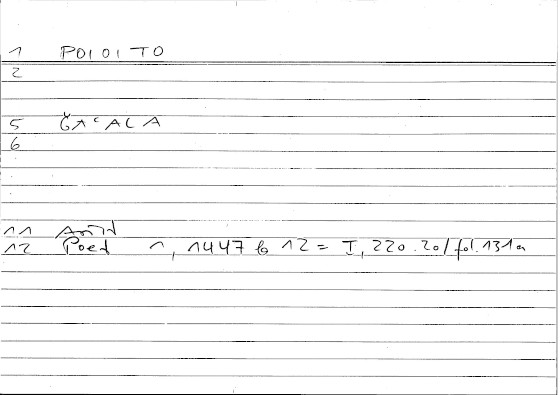 1 POIOITO
2
5 ČACALA
6
11
12 Poet 1, 1447 b 12 = I, 220.20 / fol. 131a